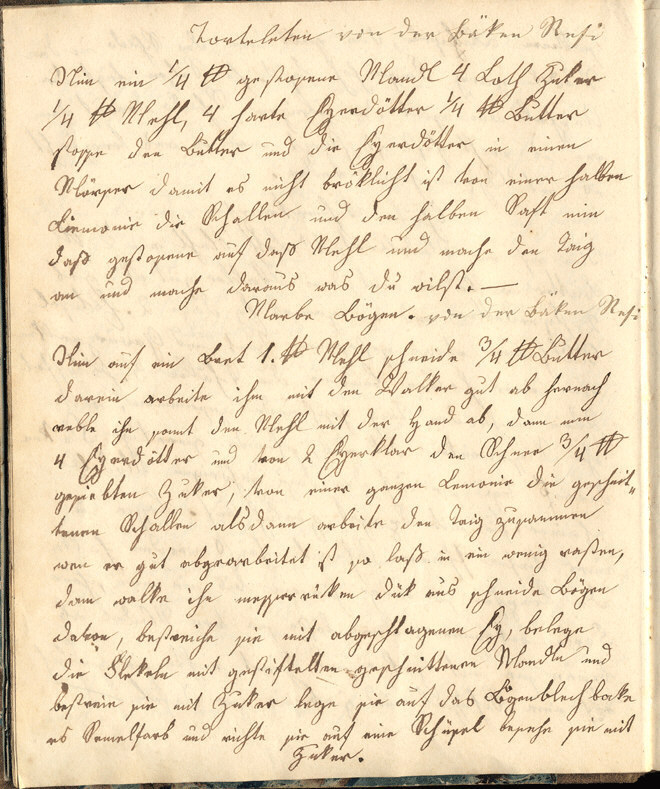 Torteleten von der Bäken Resi
Nim ein 1/4 ℔ gestossene Mandl 4 Loth Zuker
1/4 ℔ Mehl, 4 harte Eyerdötter 1/4 ℔ Butter
stosse den Butter und die Eyerdötter in einen
Mörser damit es nicht bröklicht ist von einer halben
Lemonie die Schallen und den halben Saft nim
daß gestossene auf daß Mehl und mache den Taig
an und mache daraus was du wilst. —
Marbe Bögen. von der Bäken Resi
Nim auf ein Bret 1. ℔ Mehl schneide 3/4 ℔ Butter
darein arbeite ihm mit den Walker gut ab hernach
reble ihn samt den Mehl mit der Hand ab, dann nim
4 Eyerdötter und von 2 Eyerklar den Schnee 3/4 ℔
gesiebten Zuker, von einer ganzen Lemonie die geschnit„
tenen Schallen alsdann arbeite den Taig zusammen
wen er gut abgearbeitet ist so laß in ein wenig rasten,
dann walke ihn messerrüken dük aus schneide Bögen
davon, bestreiche sie mit abgeschlagenen Ey, belege
die Flekeln mit gestiftelten geschnittenen Mandln und
bestreie sie mit Zuker lege sie auf das Bögenblech bake
es Semelfarb und richte sie auf eine Schüssel besehe sie mit
Zuker.